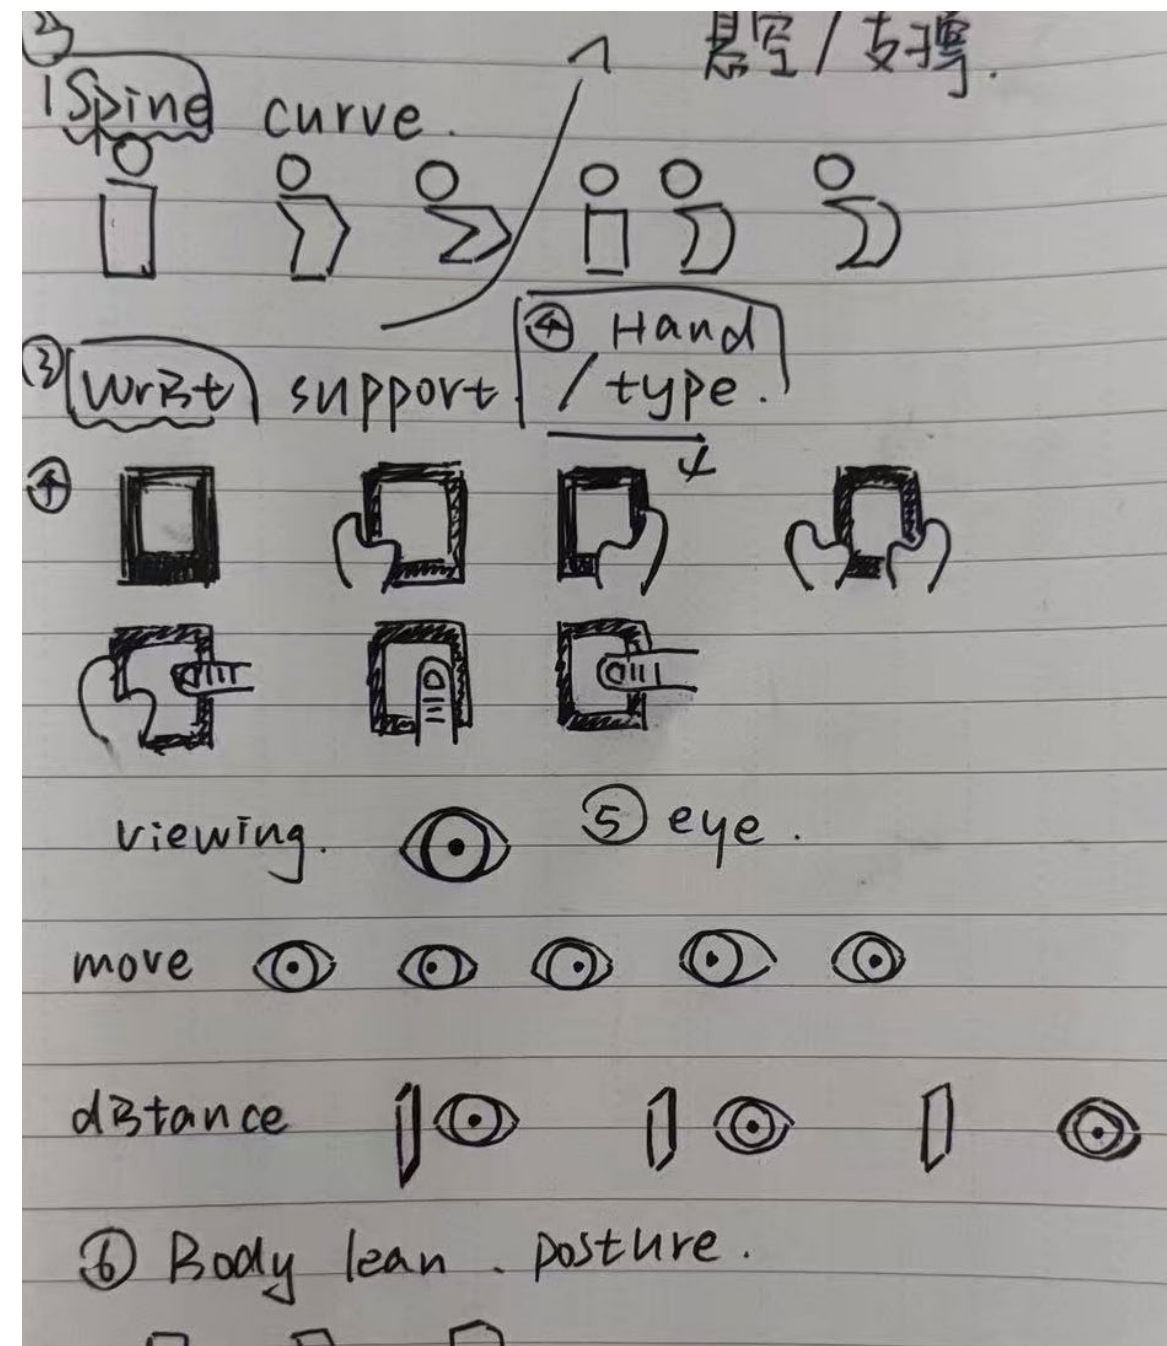 ② 悬空/支撑.
Spine curve.
③ Wrist support. ④ Hand
/type.
④
viewing. ⑤ eye.
move
distance
⑥ Body lean. posture.